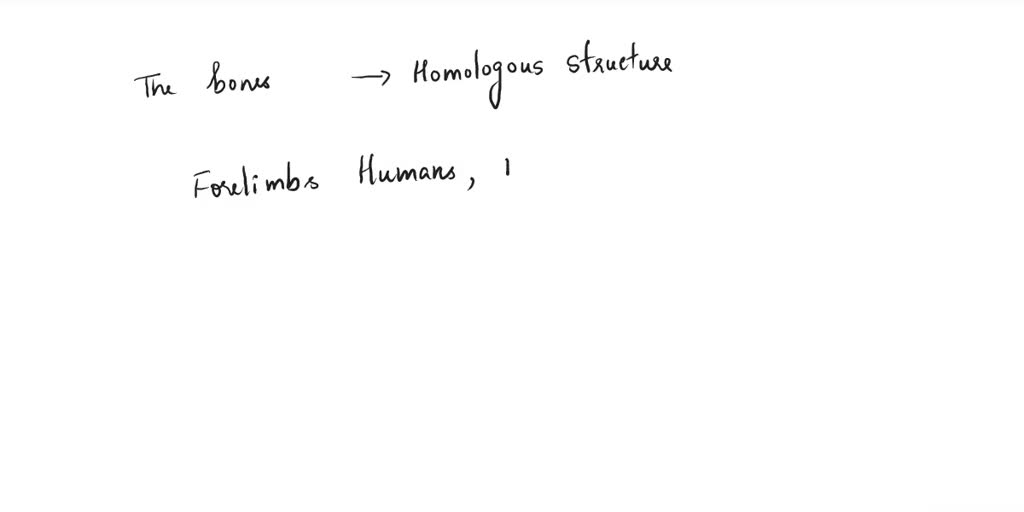 The bones → Homologous structure
Forelimbs Humans,